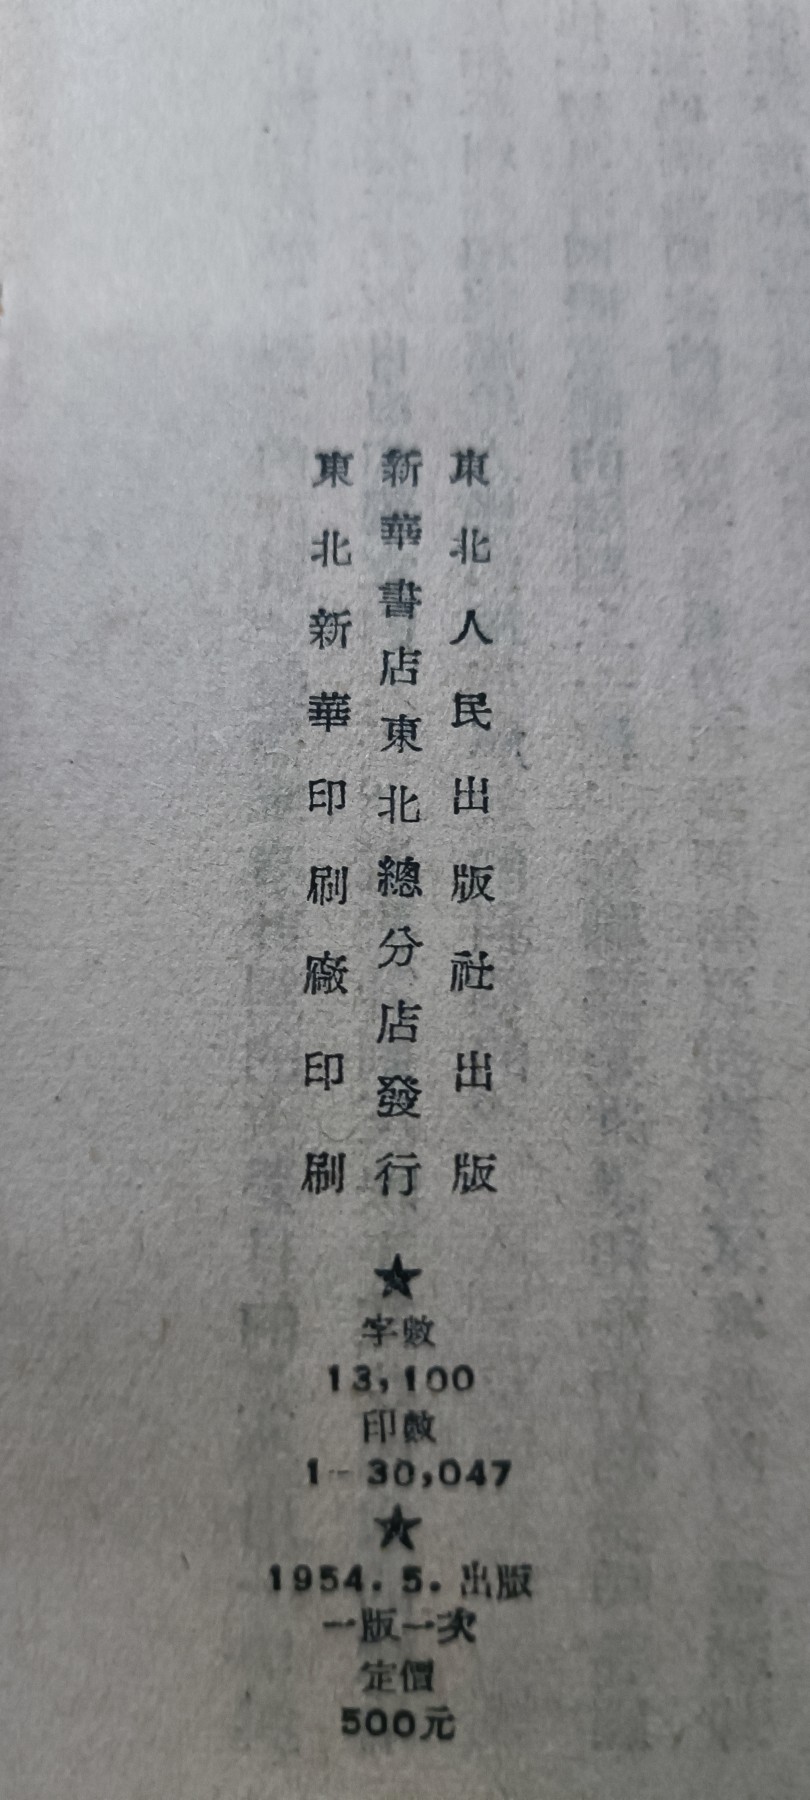 東北人民出版社出版
新華書店東北總分店發行
東北新華印刷廠印刷
★
字數
13,100
印數
1—30,047
★
1954.5.出版
一版一次
定價
500元